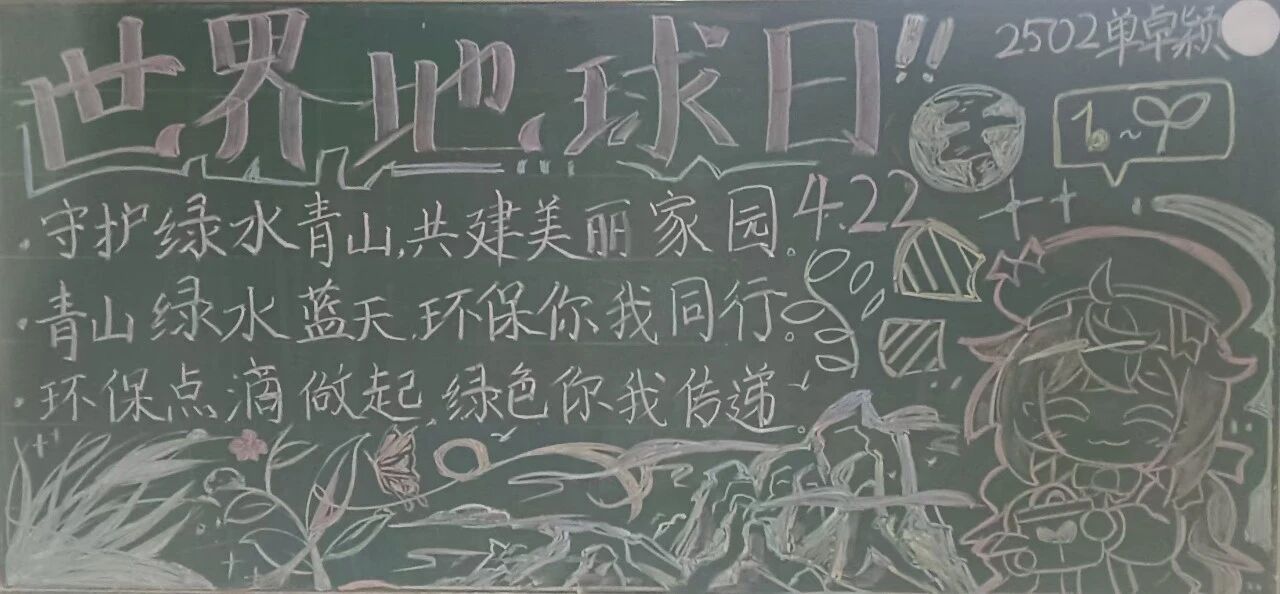 世界地球日!!
2502单卓颖
4.22
守护绿水青山,共建美丽家园.
青山绿水蓝天,环保你我同行.
环保点滴做起,绿色你我传递.